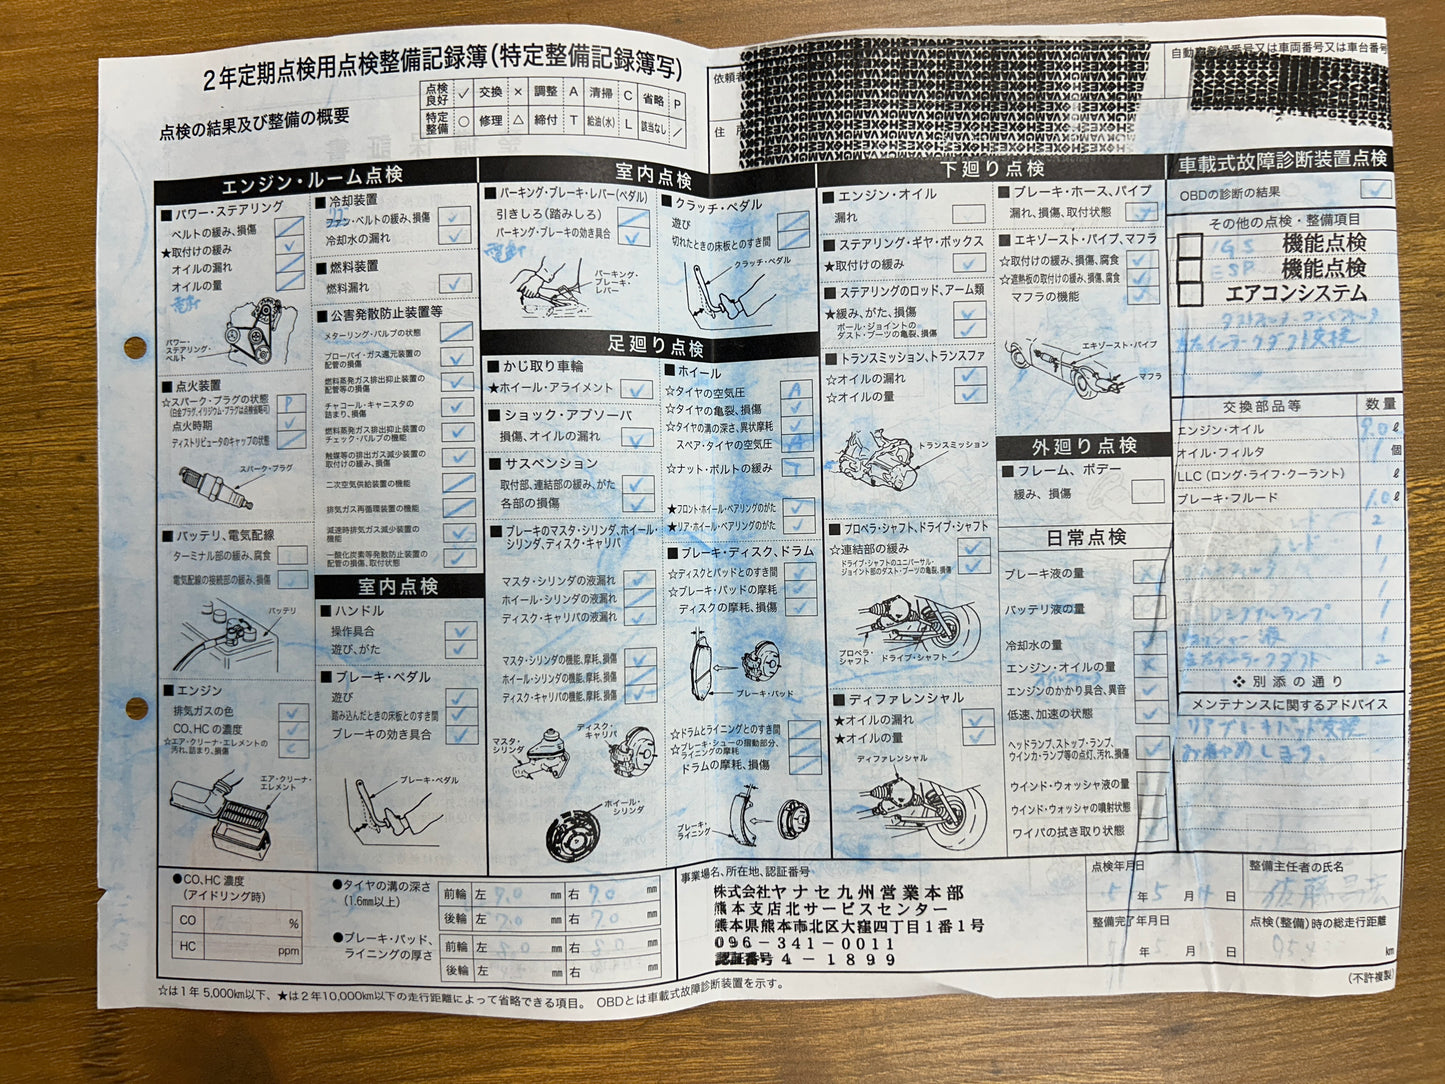 2年定期点検用点検整備記録簿(特定整備記録簿写)
点検の結果及び整備の概要
点検良好 ✓ 交換 × 調整 A 清掃 C 省略 P
特定整備 ○ 修理 △ 締付 T 給油(水) L 該当なし ／
依頼者
住所
自動車登録番号又は車両番号又は車台番号
エンジン・ルーム点検
■パワー・ステアリング
ベルトの緩み、損傷
★取付けの緩み
オイルの漏れ
オイルの量
パワー・ステアリング・ベルト
■点火装置
☆スパーク・プラグの状態
(白金プラグ、イリジウム・プラグは点検省略可)
点火時期
ディストリビュータのキャップの状態
スパーク・プラグ
■バッテリ、電気配線
ターミナル部の緩み、腐食
電気配線の接続部の緩み、損傷
バッテリ
■エンジン
排気ガスの色
CO、HCの濃度
☆エア・クリーナ・エレメントの汚れ、詰まり、損傷
エア・クリーナ・エレメント
■冷却装置
ファン・ベルトの緩み、損傷
冷却水の漏れ
■燃料装置
燃料漏れ
■公害発散防止装置等
メターリング・バルブの状態
ブローバイ・ガス還元装置の配管の損傷
燃料蒸発ガス排出抑止装置の配管等の損傷
チャコール・キャニスタの詰まり、損傷
燃料蒸発ガス排出抑止装置のチェック・バルブの機能
触媒等の排出ガス減少装置の取付けの緩み、損傷
二次空気供給装置の機能
排気ガス再循環装置の機能
減速時排気ガス減少装置の機能
一酸化炭素等発散防止装置の配管の損傷、取付状態
室内点検
■ハンドル
操作具合
遊び、がた
■ブレーキ・ペダル
遊び
踏み込んだときの床板とのすき間
ブレーキの効き具合
ブレーキ・ペダル
室内点検
■パーキング・ブレーキ・レバー(ペダル)
引きしろ(踏みしろ)
パーキング・ブレーキの効き具合
パーキング・ブレーキ・レバー
■クラッチ・ペダル
遊び
切れたときの床板とのすき間
クラッチ・ペダル
足廻り点検
■かじ取り車輪
★ホイール・アライメント
■ショック・アブソーバ
損傷、オイルの漏れ
■サスペンション
取付部、連結部の緩み、がた
各部の損傷
■ブレーキのマスタ・シリンダ、ホイール・シリンダ、ディスク・キャリパ
マスタ・シリンダの液漏れ
ホイール・シリンダの液漏れ
ディスク・キャリパの液漏れ
マスタ・シリンダの機能、摩耗、損傷
ホイール・シリンダの機能、摩耗、損傷
ディスク・キャリパの機能、摩耗、損傷
マスタ・シリンダ
ディスク・キャリパ
ホイール・シリンダ
■ホイール
☆タイヤの空気圧
☆タイヤの亀裂、損傷
☆タイヤの溝の深さ、異状摩耗
スペア・タイヤの空気圧
☆ナット・ボルトの緩み
★フロント・ホイール・ベアリングのがた
★リア・ホイール・ベアリングのがた
■ブレーキ・ディスク、ドラム
☆ディスクとパッドとのすき間
☆ブレーキ・パッドの摩耗
ディスクの摩耗、損傷
ブレーキ・パッド
☆ドラムとライニングとのすき間
☆ブレーキ・シューの摺動部分、ライニングの摩耗
ドラムの摩耗、損傷
ブレーキ・ライニング
下廻り点検
■エンジン・オイル
漏れ
■ステアリング・ギヤ・ボックス
★取付けの緩み
■ステアリングのロッド、アーム類
★緩み、がた、損傷
ボール・ジョイントのダスト・ブーツの亀裂、損傷
■トランスミッション、トランスファ
☆オイルの漏れ
☆オイルの量
トランスミッション
■プロペラ・シャフト、ドライブ・シャフト
☆連結部の緩み
ドライブ・シャフトのユニバーサル・ジョイント部のダスト・ブーツの亀裂、損傷
プロペラ・シャフト
ドライブ・シャフト
■ディファレンシャル
★オイルの漏れ
★オイルの量
ディファレンシャル
■ブレーキ・ホース、パイプ
漏れ、損傷、取付状態
■エキゾースト・パイプ、マフラ
☆取付けの緩み、損傷、腐食
☆遮熱板の取付けの緩み、損傷、腐食
マフラの機能
エキゾースト・パイプ
マフラ
外廻り点検
■フレーム、ボデー
緩み、損傷
日常点検
ブレーキ液の量
バッテリ液の量
冷却水の量
エンジン・オイルの量
エンジンのかかり具合、異音
低速、加速の状態
ヘッドランプ、ストップ・ランプ、ウインカ・ランプ等の点灯、汚れ、損傷
ウインド・ウォッシャ液の量
ウインド・ウォッシャの噴射状態
ワイパの拭き取り状態
車載式故障診断装置点検
OBDの診断の結果 ✓
その他の点検・整備項目
機能点検
ESP 機能点検
エアコンシステム
交換部品等 数量
エンジン・オイル 9.0 ℓ
オイル・フィルタ 1 個
LLC(ロング・ライフ・クーラント) ℓ
ブレーキ・フルード 1.0 ℓ
❖別添の通り
メンテナンスに関するアドバイス
リアブレーキパッド交換
お勧めします。
●CO、HC濃度
(アイドリング時)
CO %
HC ppm
●タイヤの溝の深さ
(1.6mm以上)
前輪 左 7.0 mm 右 7.0 mm
後輪 左 7.0 mm 右 7.0 mm
●ブレーキ・パッド、ライニングの厚さ
前輪 左 8.0 mm 右 8.0 mm
後輪 左 mm 右 mm
事業場名、所在地、認証番号
株式会社ヤナセ九州営業本部
熊本支店北サービスセンター
熊本県熊本市北区大窪四丁目1番1号
096-341-0011
認証番号 4-1899
点検年月日
5年5月 日
整備完了年月日
年5月 日
整備主任者の氏名
点検(整備)時の総走行距離
km
☆は1年 5,000km以下、★は2年10,000km以下の走行距離によって省略できる項目。 OBDとは車載式故障診断装置を示す。
(不許複製)